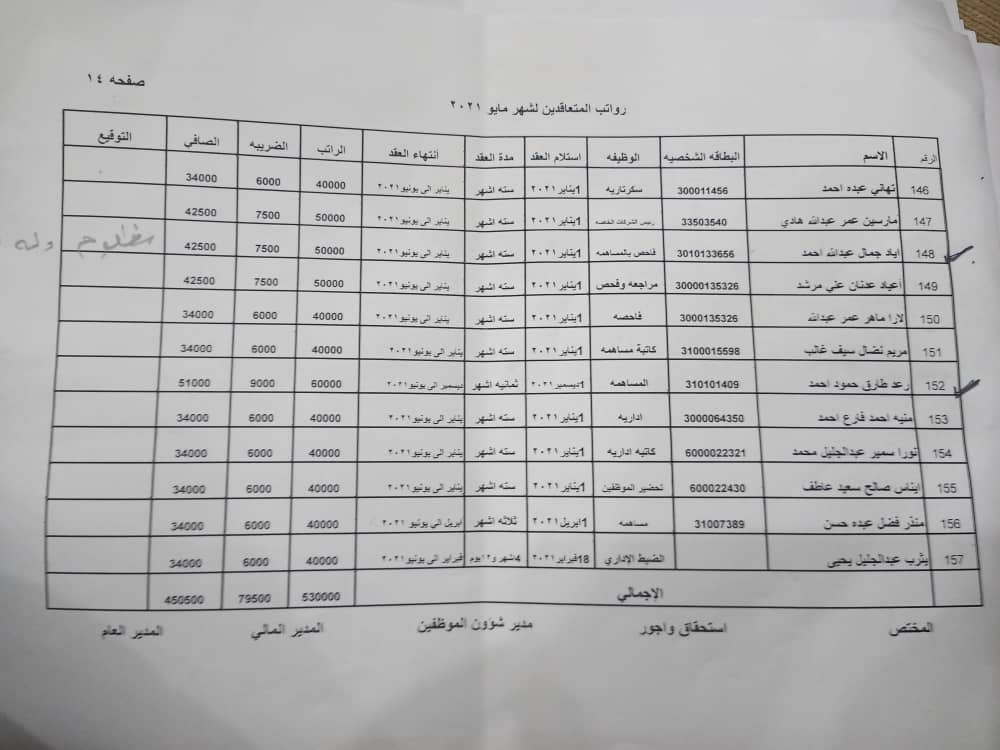 صفحه ١٤
رواتب المتعاقدين لشهر مايو ٢٠٢١
الرقم الاسم البطاقه الشخصيه الوظيفه استلام العقد مدة العقد أنتهاء العقد الراتب الضريبه الصافي التوقيع
146 تهاني عبده احمد 300011456 سكرتاريه 1يناير٢٠٢١ سته اشهر يناير الى يونيو٢٠٢١ 40000 6000 34000
147 مارسين عمر عبدالله هادي 33503540 رئيس الشركات الخاصه 1يناير٢٠٢١ سته اشهر يناير الى يونيو٢٠٢١ 50000 7500 42500
148 اياد جمال عبدالله احمد 3010133656 فاحص بالمساهمه 1يناير٢٠٢١ سته اشهر يناير الى يونيو٢٠٢١ 50000 7500 42500
149 أعياد عدنان علي مرشد 30000135326 مراجعه وفحص 1يناير٢٠٢١ سته اشهر يناير الى يونيو٢٠٢١ 50000 7500 42500
150 لارا ماهر عمر عبدالله 3000135326 فاحصه 1يناير٢٠٢١ سته اشهر يناير الى يونيو٢٠٢١ 40000 6000 34000
151 مريم نضال سيف غالب 3100015598 كاتبة مساهمه 1يناير٢٠٢١ سته اشهر يناير الى يونيو٢٠٢١ 40000 6000 34000
152 رعد طارق حمود احمد 310101409 المساهمه 1ديسمبر٢٠٢١ ثمانيه اشهر ديسمبر الى يونيو٢٠٢١ 60000 9000 51000
153 منيه احمد فارع احمد 3000064350 اداريه 1يناير٢٠٢١ سته اشهر يناير الى يونيو٢٠٢١ 40000 6000 34000
154 نورا سمير عبدالجليل محمد 6000022321 كاتبه اداريه 1يناير٢٠٢١ سته اشهر يناير الى يونيو٢٠٢١ 40000 6000 34000
155 ايناس صالح سعيد عاطف 600022430 تحضير الموظفين 1يناير٢٠٢١ سته اشهر يناير الى يونيو٢٠٢١ 40000 6000 34000
156 منذر فضل عبده حسن 31007389 مساهمه 1ابريل٢٠٢١ ثلاثه اشهر ابريل الي يونيو ٢٠٢١ 40000 6000 34000
157 يثرب عبدالجليل يحيى الضبط الاداري 18فبراير٢٠٢١ 4اشهر و١٢يوم فبراير الى يونيو٢٠٢١ 40000 6000 34000
الإجمالي 530000 79500 450500
المختص استحقاق واجور مدير شؤون الموظفين المدير المالي المدير العام